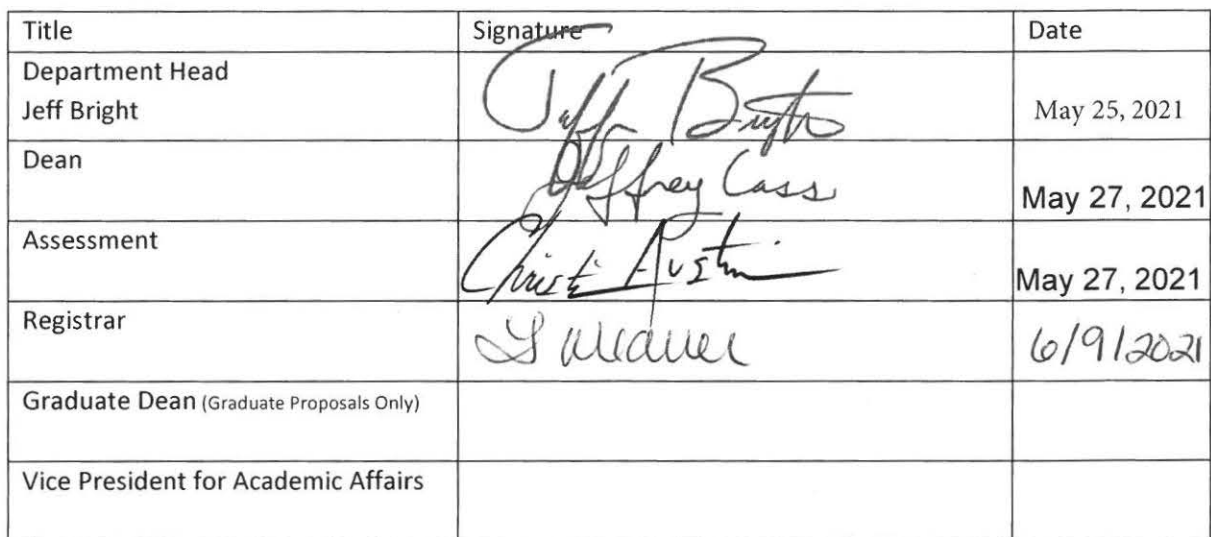 Title Signature Date
Department Head
Jeff Bright Jeff Bright May 25, 2021
Dean Jeffrey Cass May 27, 2021
Assessment Christi Austin May 27, 2021
Registrar Weaver 6/9/2021
Graduate Dean (Graduate Proposals Only)
Vice President for Academic Affairs